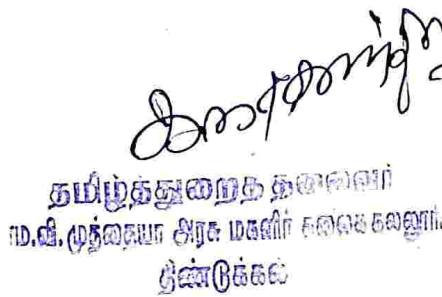 தமிழ்த்துறைத் தலைவர்
ம.வி. முத்தையா அரசு மகளிர் கலைக் கல்லூரி.
திண்டுக்கல்